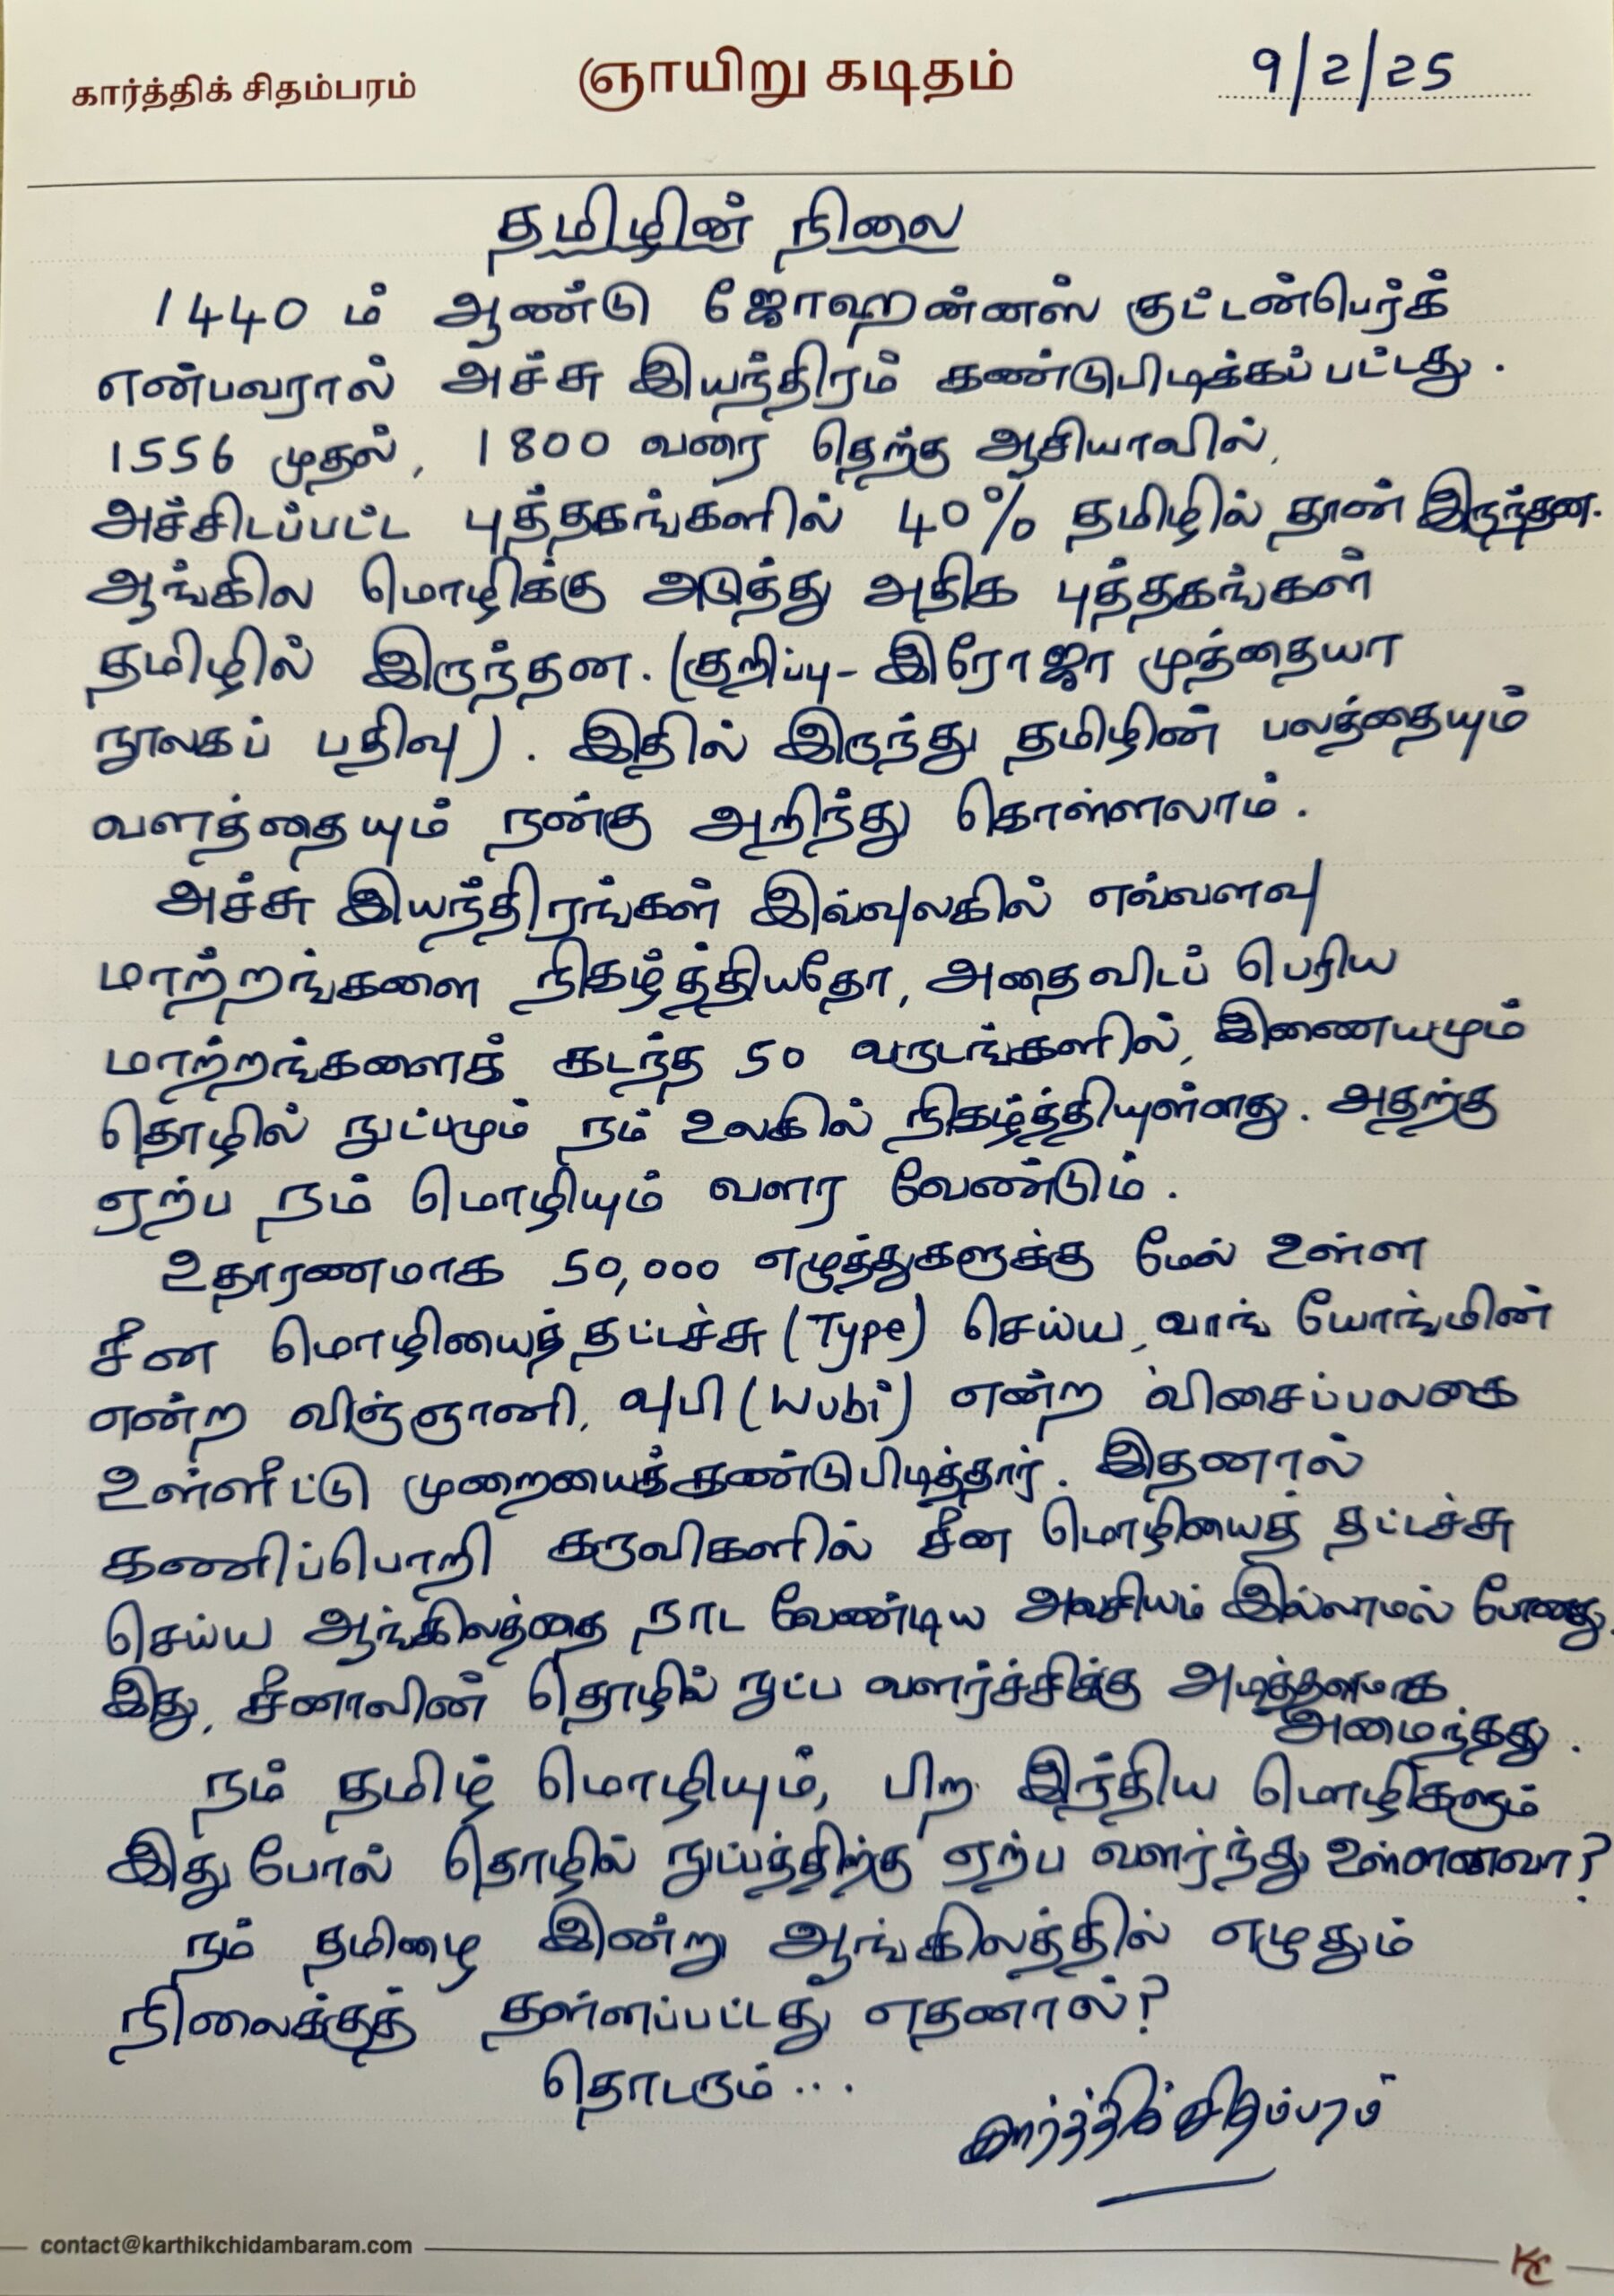 கார்த்திக் சிதம்பரம்
ஞாயிறு கடிதம்
9/2/25
தமிழின் நிலை
1440 ம் ஆண்டு ஜோஹன்னஸ் குட்டன்பெர்க்
என்பவரால் அச்சு இயந்திரம் கண்டுபிடிக்கப் பட்டது.
1556 முதல், 1800 வரை தெற்கு ஆசியாவில்,
அச்சிடப்பட்ட புத்தகங்களில் 40% தமிழில் தான் இருந்தன.
ஆங்கில மொழிக்கு அடுத்து அதிக புத்தகங்கள்
தமிழில் இருந்தன. (குறிப்பு - இரோஜா முத்தையா
நூலகப் பதிவு). இதில் இருந்து தமிழின் பலத்தையும்
வளத்தையும் நன்கு அறிந்து கொள்ளலாம்.
அச்சு இயந்திரங்கள் இவ்வுலகில் எவ்வளவு
மாற்றங்களை நிகழ்த்தியதோ, அதைவிடப் பெரிய
மாற்றங்களைக் கடந்த 50 வருடங்களில், இணையமும்
தொழில் நுட்பமும் நம் உலகில் நிகழ்த்தியுள்ளது. அதற்கு
ஏற்ப நம் மொழியும் வளர வேண்டும்.
உதாரணமாக 50,000 எழுத்துகளுக்கு மேல் உள்ள
சீன மொழியைத் தட்டச்சு (Type) செய்ய, வாங் யோங்மின்
என்ற விஞ்ஞானி, வுபி (Wubi) என்ற விசைப்பலகை
உள்ளீட்டு முறையைக் கண்டுபிடித்தார். இதனால்
கணிப்பொறி கருவிகளில் சீன மொழியைத் தட்டச்சு
செய்ய ஆங்கிலத்தை நாட வேண்டிய அவசியம் இல்லாமல் போனது.
இது, சீனாவின் தொழில் நுட்ப வளர்ச்சிக்கு அடித்தளமாக
அமைந்தது.
நம் தமிழ் மொழியும், பிற இந்திய மொழிகளும்
இது போல் தொழில் நுட்பத்திற்கு ஏற்ப வளர்ந்து உள்ளனவா?
நம் தமிழை இன்று ஆங்கிலத்தில் எழுதும்
நிலைக்குத் தள்ளப்பட்டது எதனால்?
தொடரும்...
கார்த்திக் சிதம்பரம்
contact@karthikchidambaram.com
KC